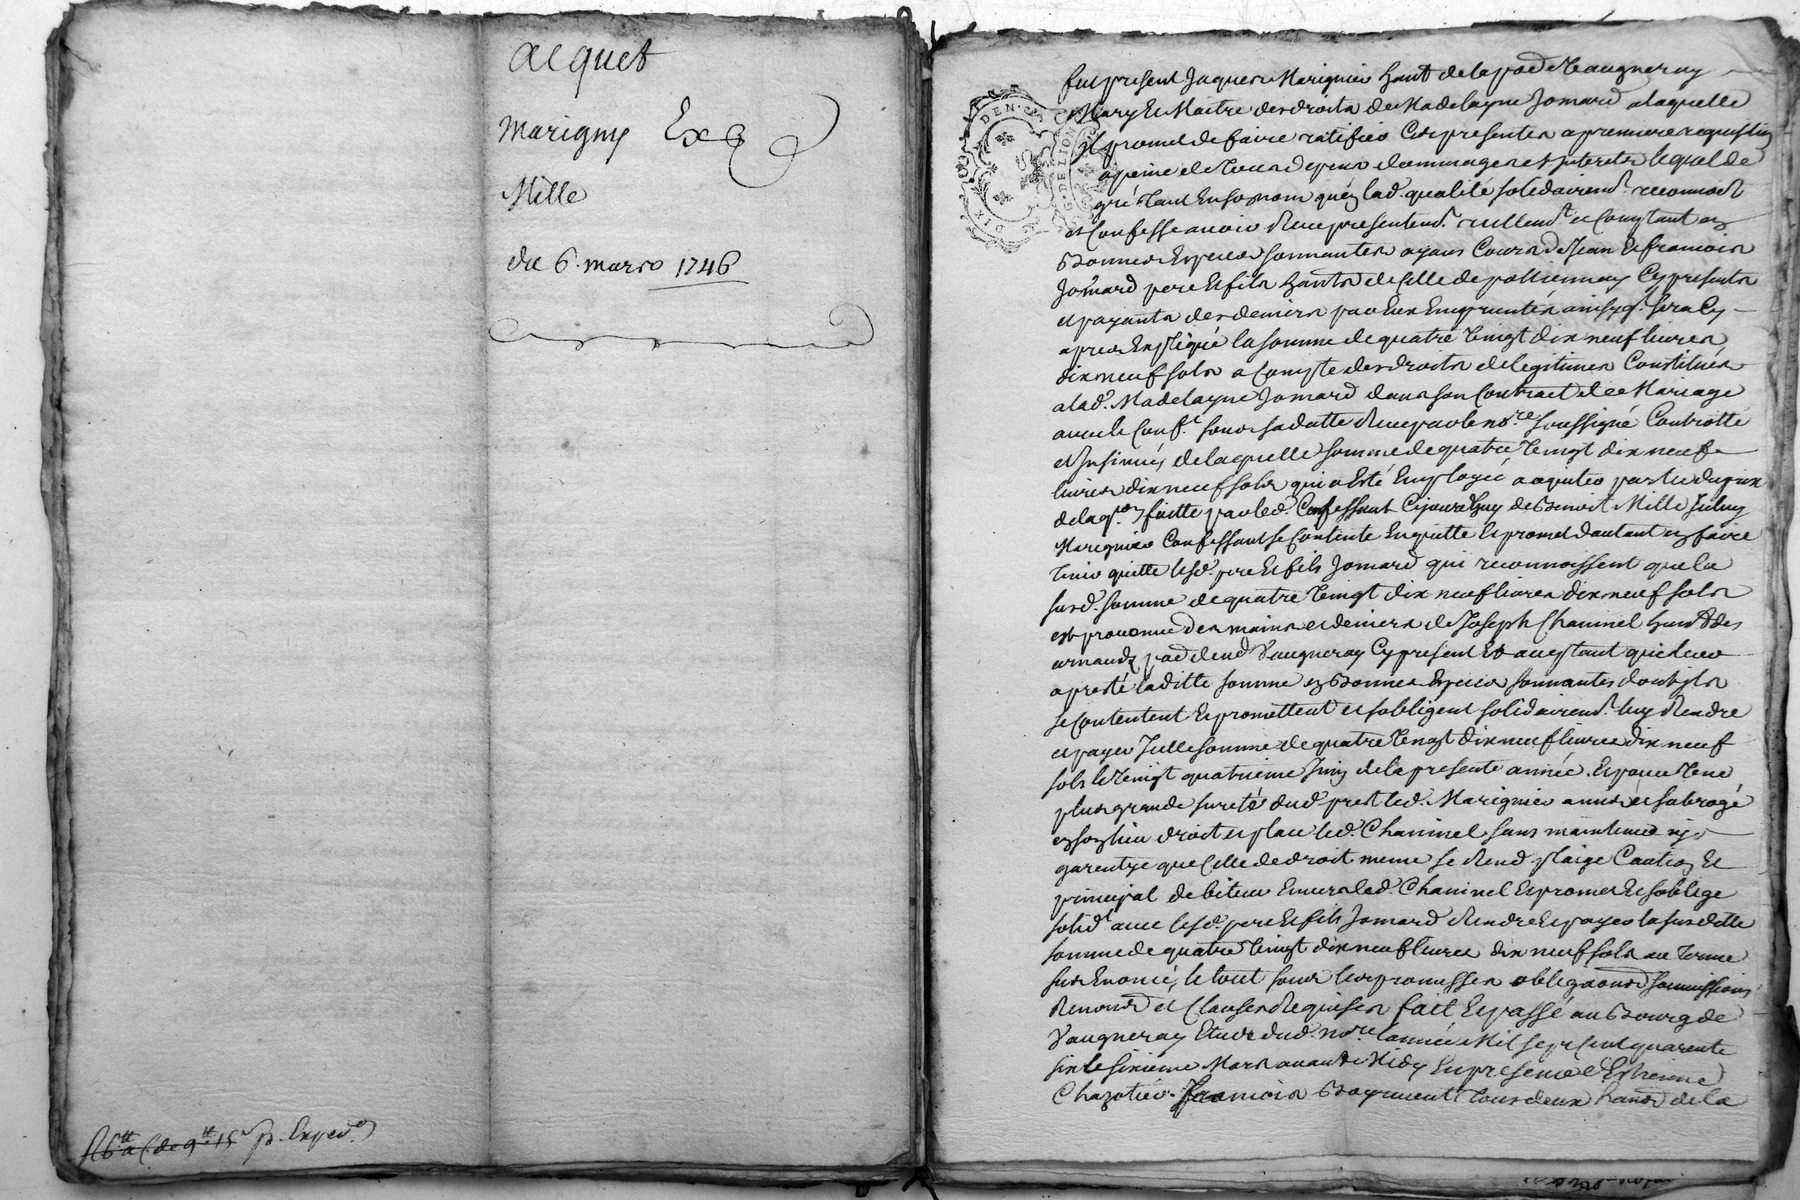 acquet
Marigny Exp
Mille
du 6 mars 1746
fut present Jaques Marignier hant de la parr de Vaugneray
Mary Et Maitre des droits de Madelayne Jomard a laquelle
il promet de faire ratifier Ces presentes a premiere requisition
a peine de tous depens dommages et jnterets lequel de
gré tant En son nom qu'en lad. qualité solidairemt. reconnoit
et Confesse avoir Receu presentemt. reellemt. et Comptant en
Bonnes Especes sonnantes ayans Cours de Jean Et francois
Jomard pere Et fils hants de Celle de pollionnay Cy presents
et payants des deniers par Eux Empruntés ainsy q. sera Cy
apres Expliqué la somme de quatre vingt dix neuf livres
dix neuf sols a Compte des droits de legitimes Constitués
a lad. Madelayne Jomard dans son Contract de Mariage
avec le Conft. sous sa datte Receu par le nore. soussigné Controllé
et Jnsinué, de laquelle somme de quatre vingt dix neuf
livres dix neuf sols qui a Esté Employée a aquiter partie du prix
de laqon. faitte par led. Confessant Cejourdhuy de Benoit Mille
Marignier Confessant se Contente En quitte Et promet d'autant en faire
tenir quitte lesd. pere Et fils Jomard qui reconnoissent que la
susd. somme de quatre vingt dix neuf livres dix neuf sols
est provenue des mains et deniers de Joseph Chaninel hant des
arnauds parr dud Vaugneray Cy present Et aceptant qui leur
a presté laditte somme en Bonnes Especes sonnantes dont ils
se Contentent Et promettent et s'obligent solidairemt. luy Rendre
et payer Jcelle somme de quatre vingt dix neuf livres dix neuf
sols le vingt quatrieme Juin de la presente année. Et pour
plus grande sureté dud prest led. Marignier a mis et subrogé
en son lieu droit et place led. Chaninel sans maintenue ny
garentye que Celle de droit meme se Rend plaige Caution Et
principal debiteur Envers led. Chaninel Et promet Et s'oblige
solidt avec lesd. pere Et fils Jomard Rendre Et payer la susditte
somme de quatre vingt dix neuf livres dix neuf sols au terme
sus Enoncé, le tout sous les promesses obligaons soumissions
Renons et Clauses Requises fait Et passé au Bourg de
Vaugneray Etude dud. nore. l'année Mil sept Cent quarente
six le sixieme Mars avant Midy En presence d'Estienne
Chazotier. francois Bogument tous deux hants de la
p. Exped.